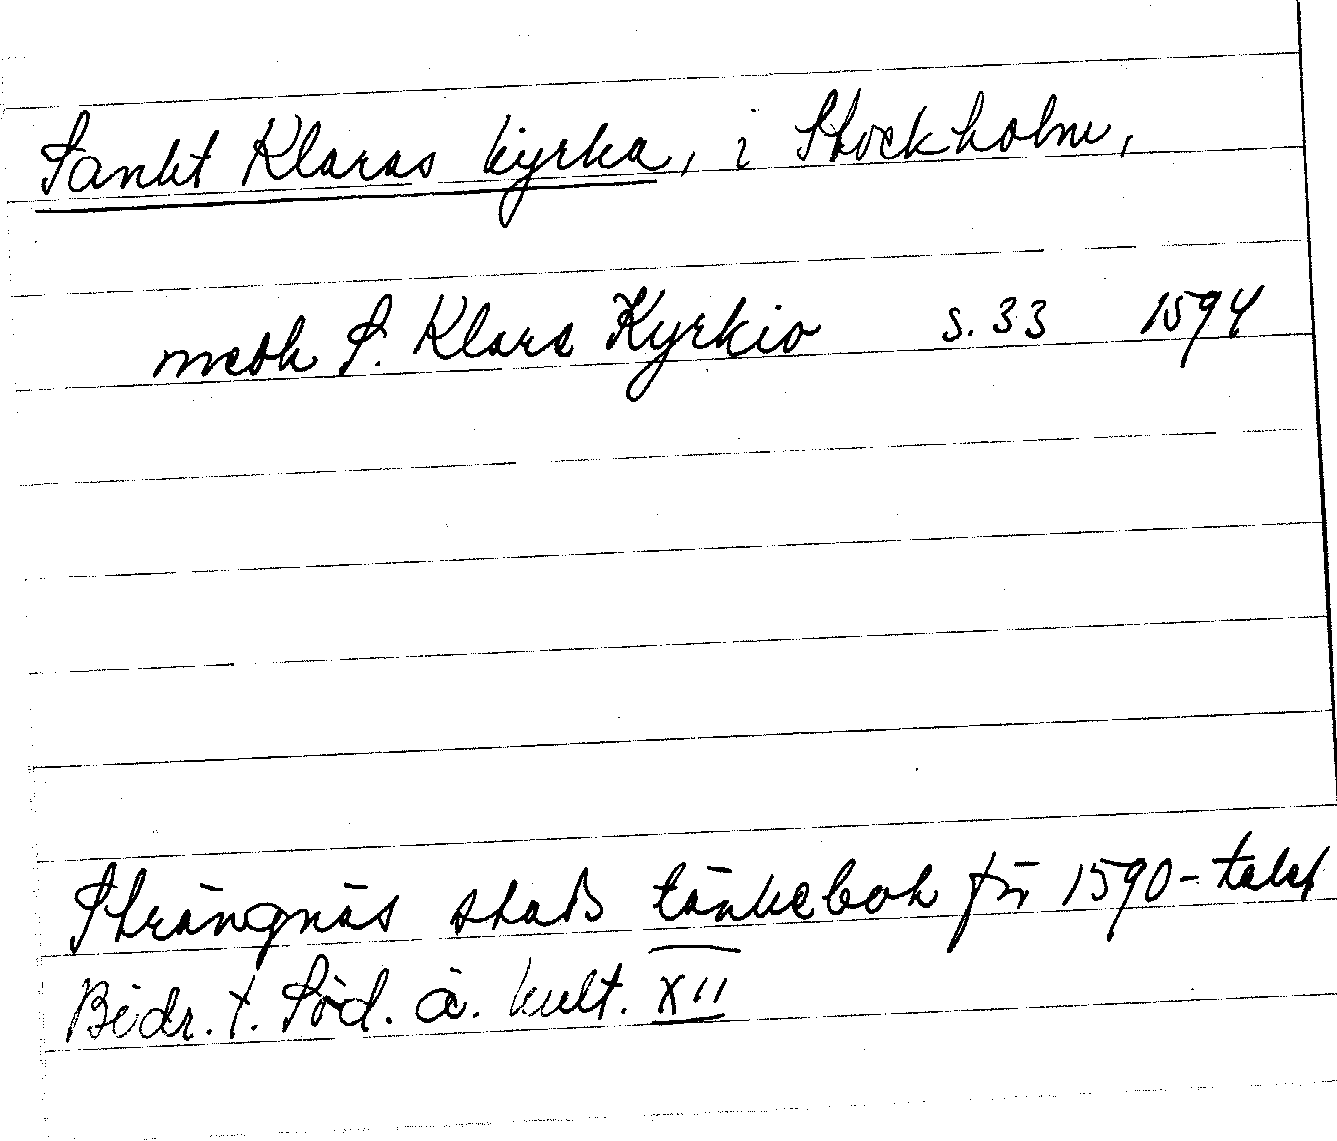 Sankt Klaras kyrka, i Stockholm,
medh S. Klara Kyrkio s. 33 1594
Strängnäs stads tänkebok för 1590-talet
Bidr. t. Söd. ä. kult. XII